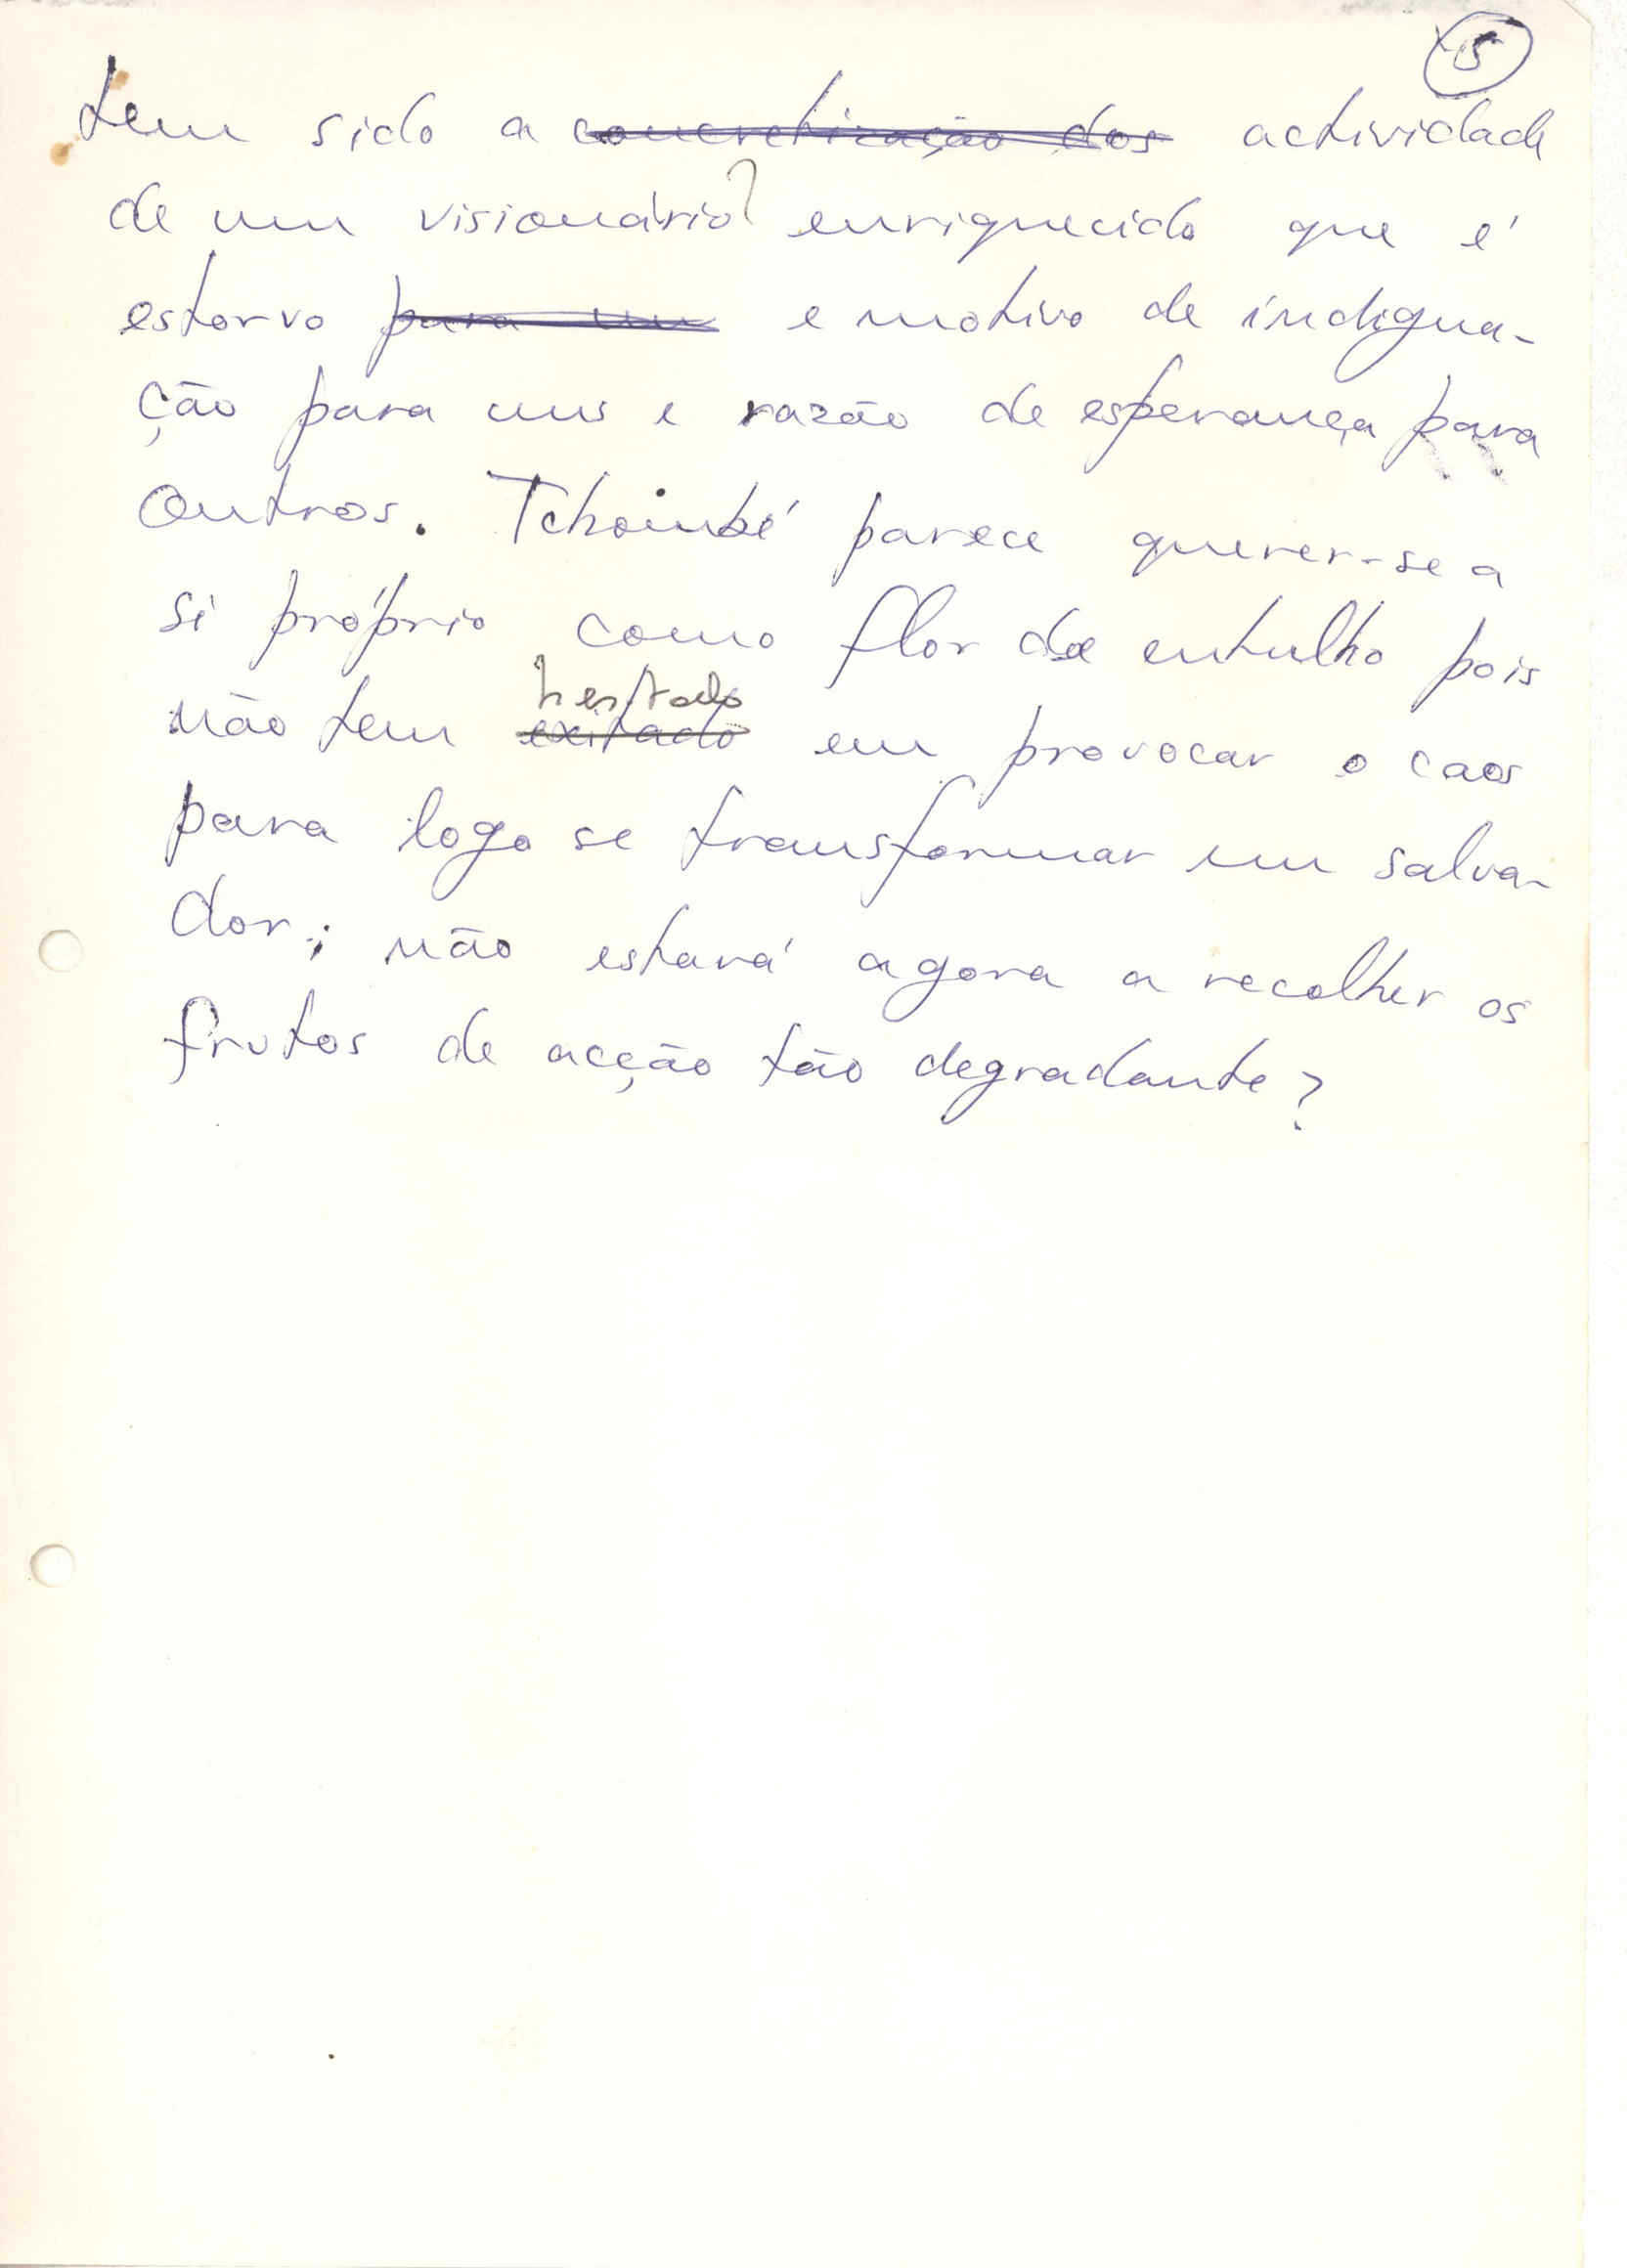 5
tem sido a concretização dos actividade
de um visionário? enriquecido que é
estorvo para um e motivo de indigna-
ção para uns e razão de esperança para
outros. Tchombé parece querer-se a
si próprio como flor de entulho pois
hesitado
não tem exitado em provocar o caos
para logo se transformar em salva-
dor; não estará agora a recolher os
frutos de acção tão degradante?